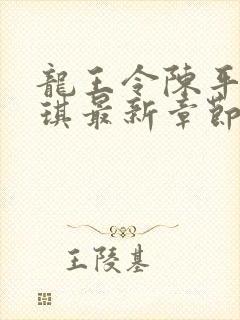 龍王令陳平
琪最新章節
王陵基